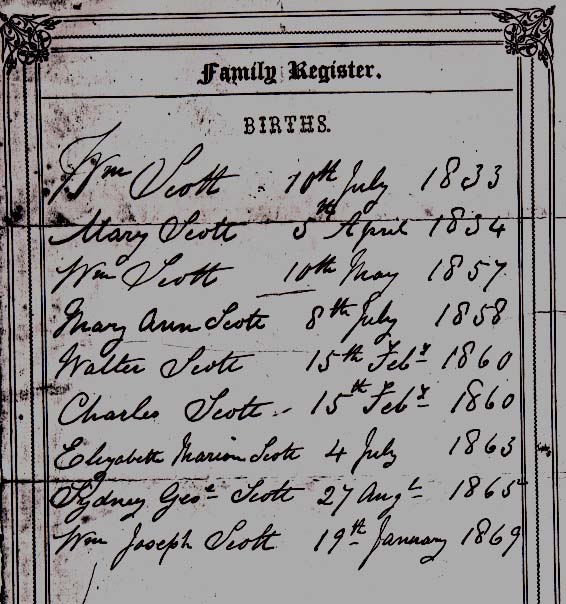 Family Register.
BIRTHS.
Wm Scott 10th July 1833
Mary Scott 5th April 1834
Wm Scott 10th May 1857
Mary Ann Scott 8th July 1858
Walter Scott 15th Feby 1860
Charles Scott 15th Feby 1860
Elizabeth Marion Scott 4 July 1863
Sydney Geoe Scott 27 Augt 1865
Wm Joseph Scott 19th January 1869